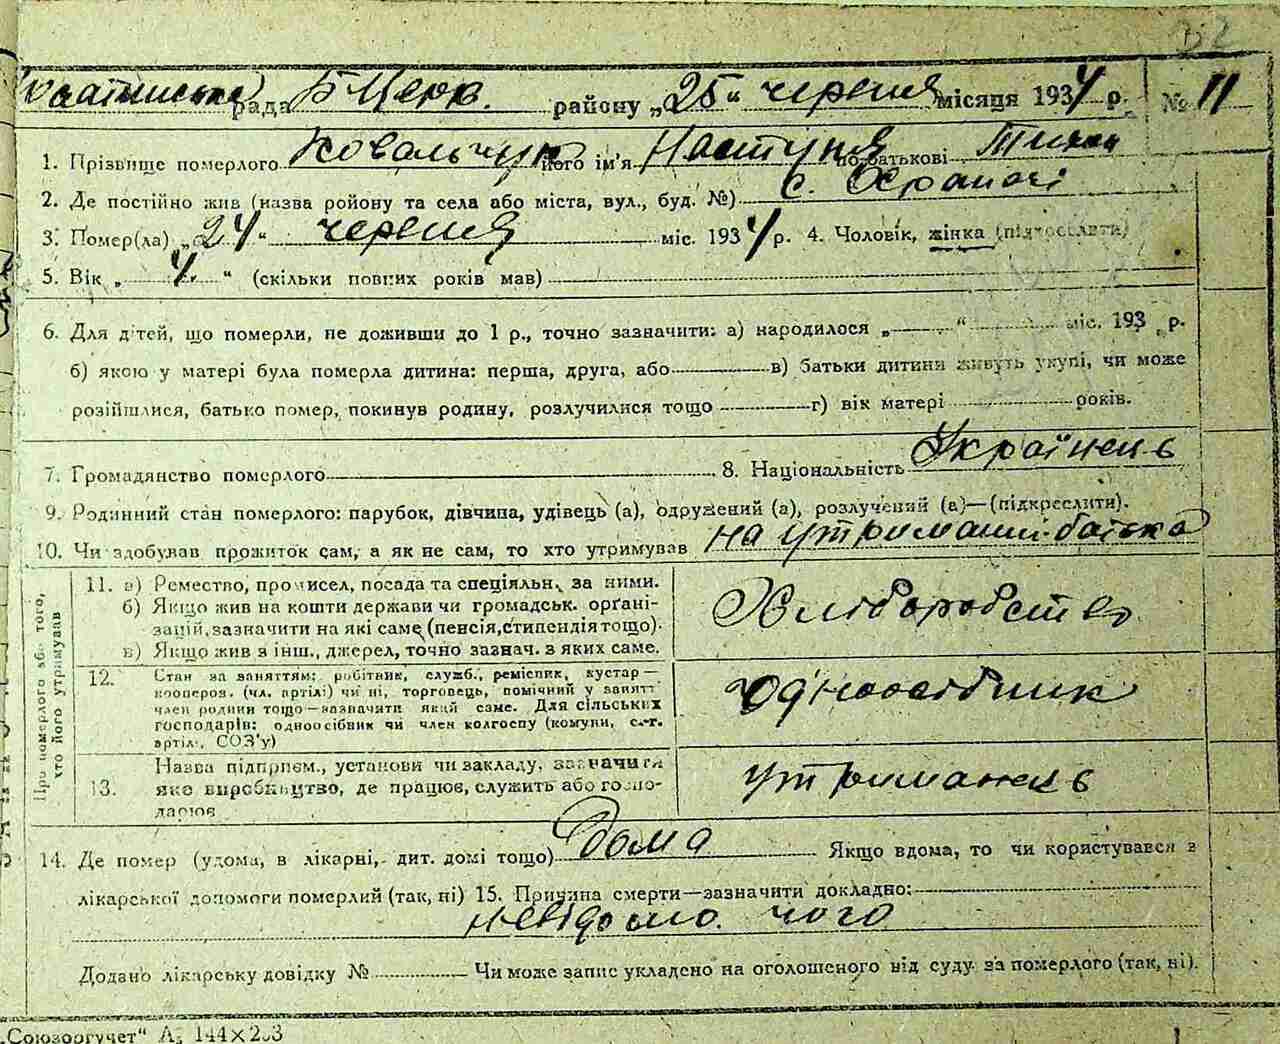 32
рада Б Церк. району „25“ червня місяця 1934 р. № 11
1. Прізвище померлого Ковальчук його ім'я Настуня по батькові Тихон
2. Де постійно жив (назва ройону та села або міста, вул., буд. №) с.
3. Помер(ла) „24“ червня міс. 1934 р. 4. Чоловік, жінка (підкреслити)
5. Вік „4.“ (скільки повних років мав)
6. Для дітей, що померли, не доживши до 1 р., точно зазначити: а) народилося „ “ міс. 193 р.
б) якою у матері була померла дитина: перша, друга, або в) батьки дитини живуть укупі, чи може
розійшлися, батько помер, покинув родину, розлучилися тощо г) вік матері років.
7. Громадянство померлого 8. Національність Українець
9. Родинний стан померлого: парубок, дівчина, удівець (а), одружений (а), розлучений (а)—(підкреслити).
10. Чи здобував прожиток сам, а як не сам, то хто утримував на утриманні батька
Про померлого або того, хто його утримував
11. а) Ремество, промисел, посада та спеціяльн. за ними.
б) Якщо жив на кошти держави чи громадськ. орґані-
зацій, зазначити на які саме (пенсія, стипендія тощо).
в) Якщо жив з інш., джерел, точно зазнач. з яких саме.
Хліборобство
12. Стан за заняттям: робітник, служб., реміспик, кустар—
коопероз. (чл. артілі) чи ні, торговець, помічний у занятт
член родини тощо—зазначити який саме. Для сільських
господарів: одноосібник чи член колгоспу (комуни, с.-г.
артілі, СОЗ'у)
одноосібник
13. Назва підприєм., установи чи закладу, зазначити
яке виробництво, де працює, служить або госпо-
дарює
утриманець
14. Де помер (удома, в лікарні, дит. домі тощо) Дома Якщо вдома, то чи користувався з
лікарської допомоги померлий (так, ні) 15. Причина смерти—зазначити докладно:
невідомо. чого
Додано лікарську довідку № Чи може запис укладено на оголошеного від суду за померлого (так, ні).
„Союзоргучет“ А₅ 144×203